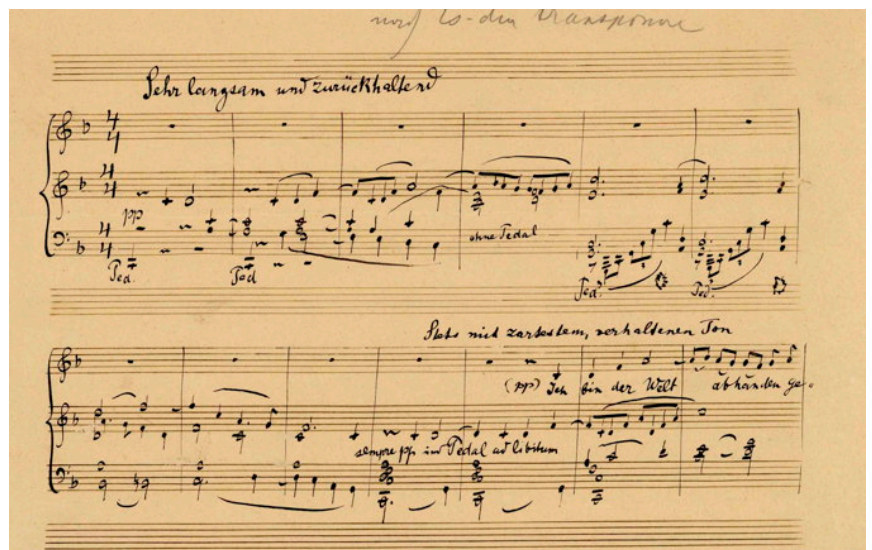 nach Es-dur
Sehr langsam und zurückhaltend
pp
ohne Pedal
Ped. Ped Ped. Ped.
Stets mit zartestem, verhaltenen Ton
(pp) Ich bin der Welt abhanden ge-
sempre pp und Pedal ad libitum